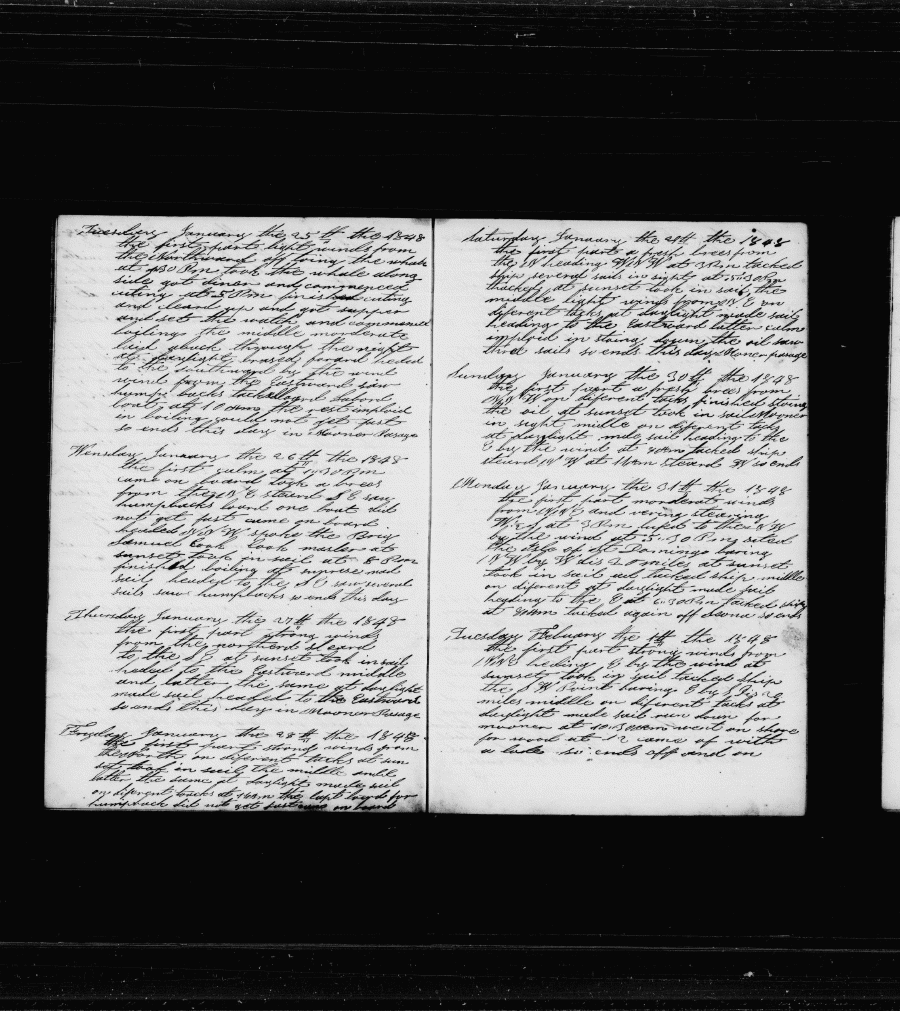 Tuesday January the 25 th the 1848
the first part light winds from
the Northward off bring the whale
at 1.30 Pm took the whale along
side got diner and commenced
cuting at 5 Pm finished cuting
and cleard up and got supper
and set the watch and commenced
boiling the middle moderate
luff through the night
at daylight brased forard heded
to the southward by the wind
wind from the Eastward saw
hump backs lowerd Labord
boat at 10 am the rest imploid
in boiling could not get fast
so ends this day in Mooner Pasage
Wensday January the 26 th the 1848
the first calm at 1.30 Pm
came on board took a brees
from the N E steard S E saw
humpbacks lowrd one boat did
not get fast came on board
headed N N W spoke the Brig
Samuel Cook Cook master at
sunset took in sail at 8 Pm
finished boiling at sunrise mad
sail headed to the S E saw several
sails saw humpbacks so ends this day
Thursday January the 27 th the 1848
the first part strong winds
from the northerd steard
to the S E at sunset took in sail
heded to the Eastward middle
and latter the same at daylight
made sail headed to the Eastward
so ends this day in Mooner Pasage
Fryday January the 28 th the 1848
the first part strong winds from
the North on diferent tacks at sun
set took in sail the middle and
latter the same at daylight made sail
on diferent tacks at am the lowrd for
humpback did not get fast came on board
Saturday January the 29 th the 1848
the first part a fresh brees from
the N heading W N W at 3 Pm tacked
ship several sails in sight at 5.30 Pm
tacked at sunset took in sail the
middle light winds from N E on
diferent tacks at daylight made sail
heading to the Eastward latter calm
imploid in stoing down the oil saw
three sails so ends this day Mooner pasage
Sunday January the 30 th the 1848
the first part a fresh brees from
N N W on diferent tacks finished stoing
the oil at sunset took in sail Mooner
in sight midle on diferent tacks
at daylight mde sail heading to the
E by the wind at am tacked ship
steard N W at 11 am steard W so ends
Monday January the 31 th the 1848
the first part moderate winds
from N N E and vering stearing
W at 3 Pm lufed to the N W
by the wind at 5.30 Pm sited
the Isle of St Domingo baring
N W by W dis 20 miles at sunset
took in sail and tacked ship middle
on diferent at daylight made sail
heading to the E at 6.30 tacked ship
at am tacked again off so ends
Tuesday Febuary the 1th the 1848
the first part strong winds from
N N E heding E by the wind at
sunset took in sail tacked ship
the S W Point baring E by S
miles middle on diferent tacks at
daylight made sail run down for
mooner at 10.30 am went on shore
for wood at 12 came of with
a lode so ends off and on